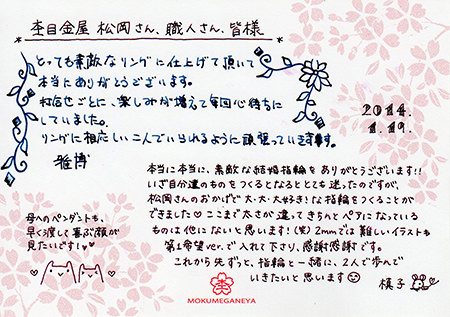 杢目金屋 松岡さん、職人さん、皆様
とっても素敵なリングに仕上げて頂いて
本当にありがとうございます。
打合せごとに、楽しみが増えて毎回心待ちに
していました。
リングに相応しい二人でいられるように頑張っていきます。
雅博
2014.
1.19.
本当に本当に、素敵な結婚指輪をありがとうございます!!
いざ自分達のものをつくるとなるととても迷ったのですが、
松岡さんのおかげで大・大・大好き!な指輪をつくることが
できました♡ ここまで太さが違ってきちんとペアになっている
ものは他にないと思います!(笑) 2mmでは難しいイラストも
第1希望ver.で入れて下さり、感謝感謝です。
これから先ずっと、指輪と一緒に、2人で歩んで
いきたいと思います
槙子
母へのペンダントも、
早く渡して喜ぶ顔が
見たいです!♥
MOKUMEGANEYA